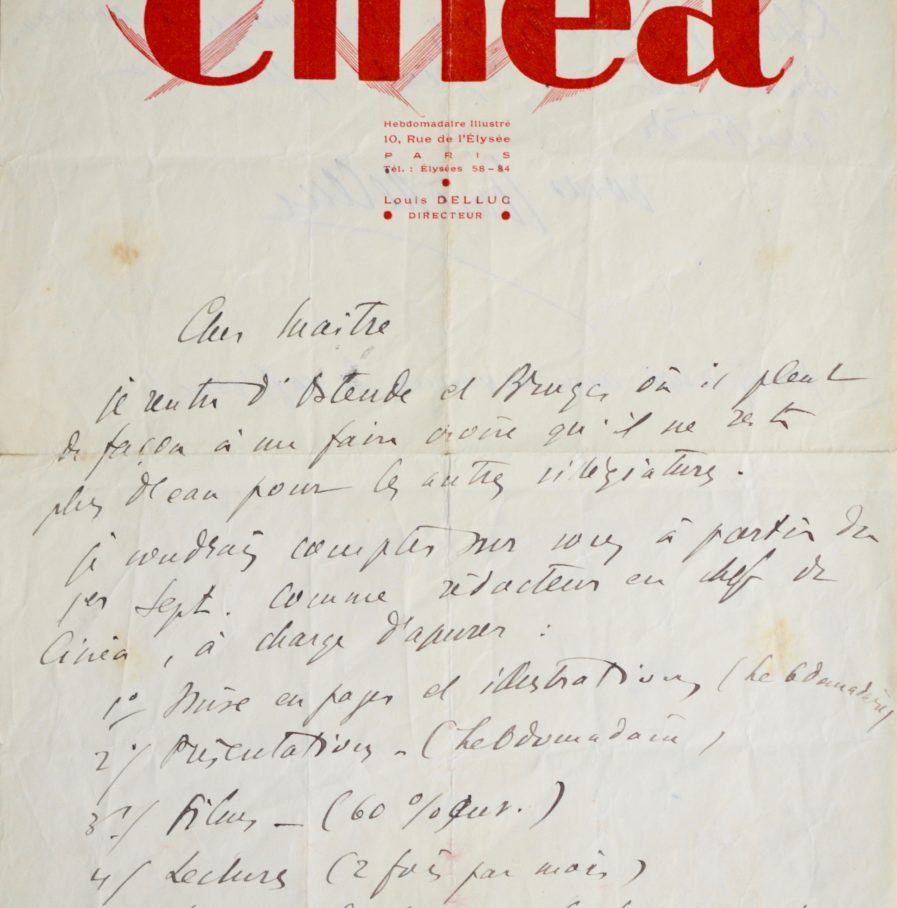 Cinéa
Hebdomadaire Illustré
10, Rue de l'Élysée
PARIS
Tél. : Élysées 58-84
Louis DELLUC
DIRECTEUR
Cher Maître
je rentre d'Ostende et Bruges où il pleut
de façon à me faire croire qu'il ne reste
plus d'eau pour les autres villégiatures.
je voudrais compter sur vous à partir du
1er Sept. comme rédacteur en chef de
Cinéa, à charge d'assurer :
1o Mise en pages et illustrations (hebdomadaire)
2o/ Présentations - (hebdomadaire)
3o/ Films - (60 %
4/ Lectures (2 fois par mois)